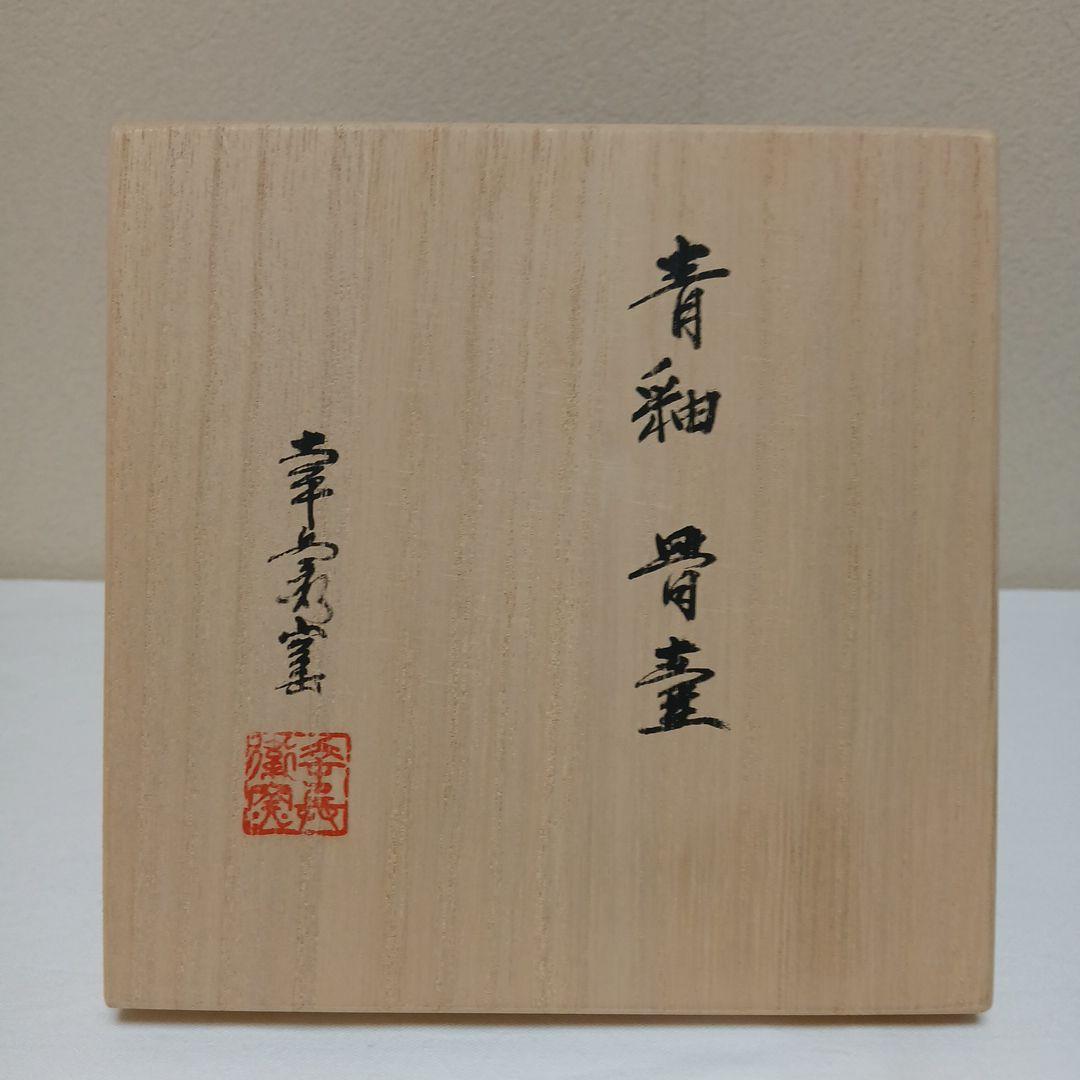 青釉 骨壷
幸兵衛窯